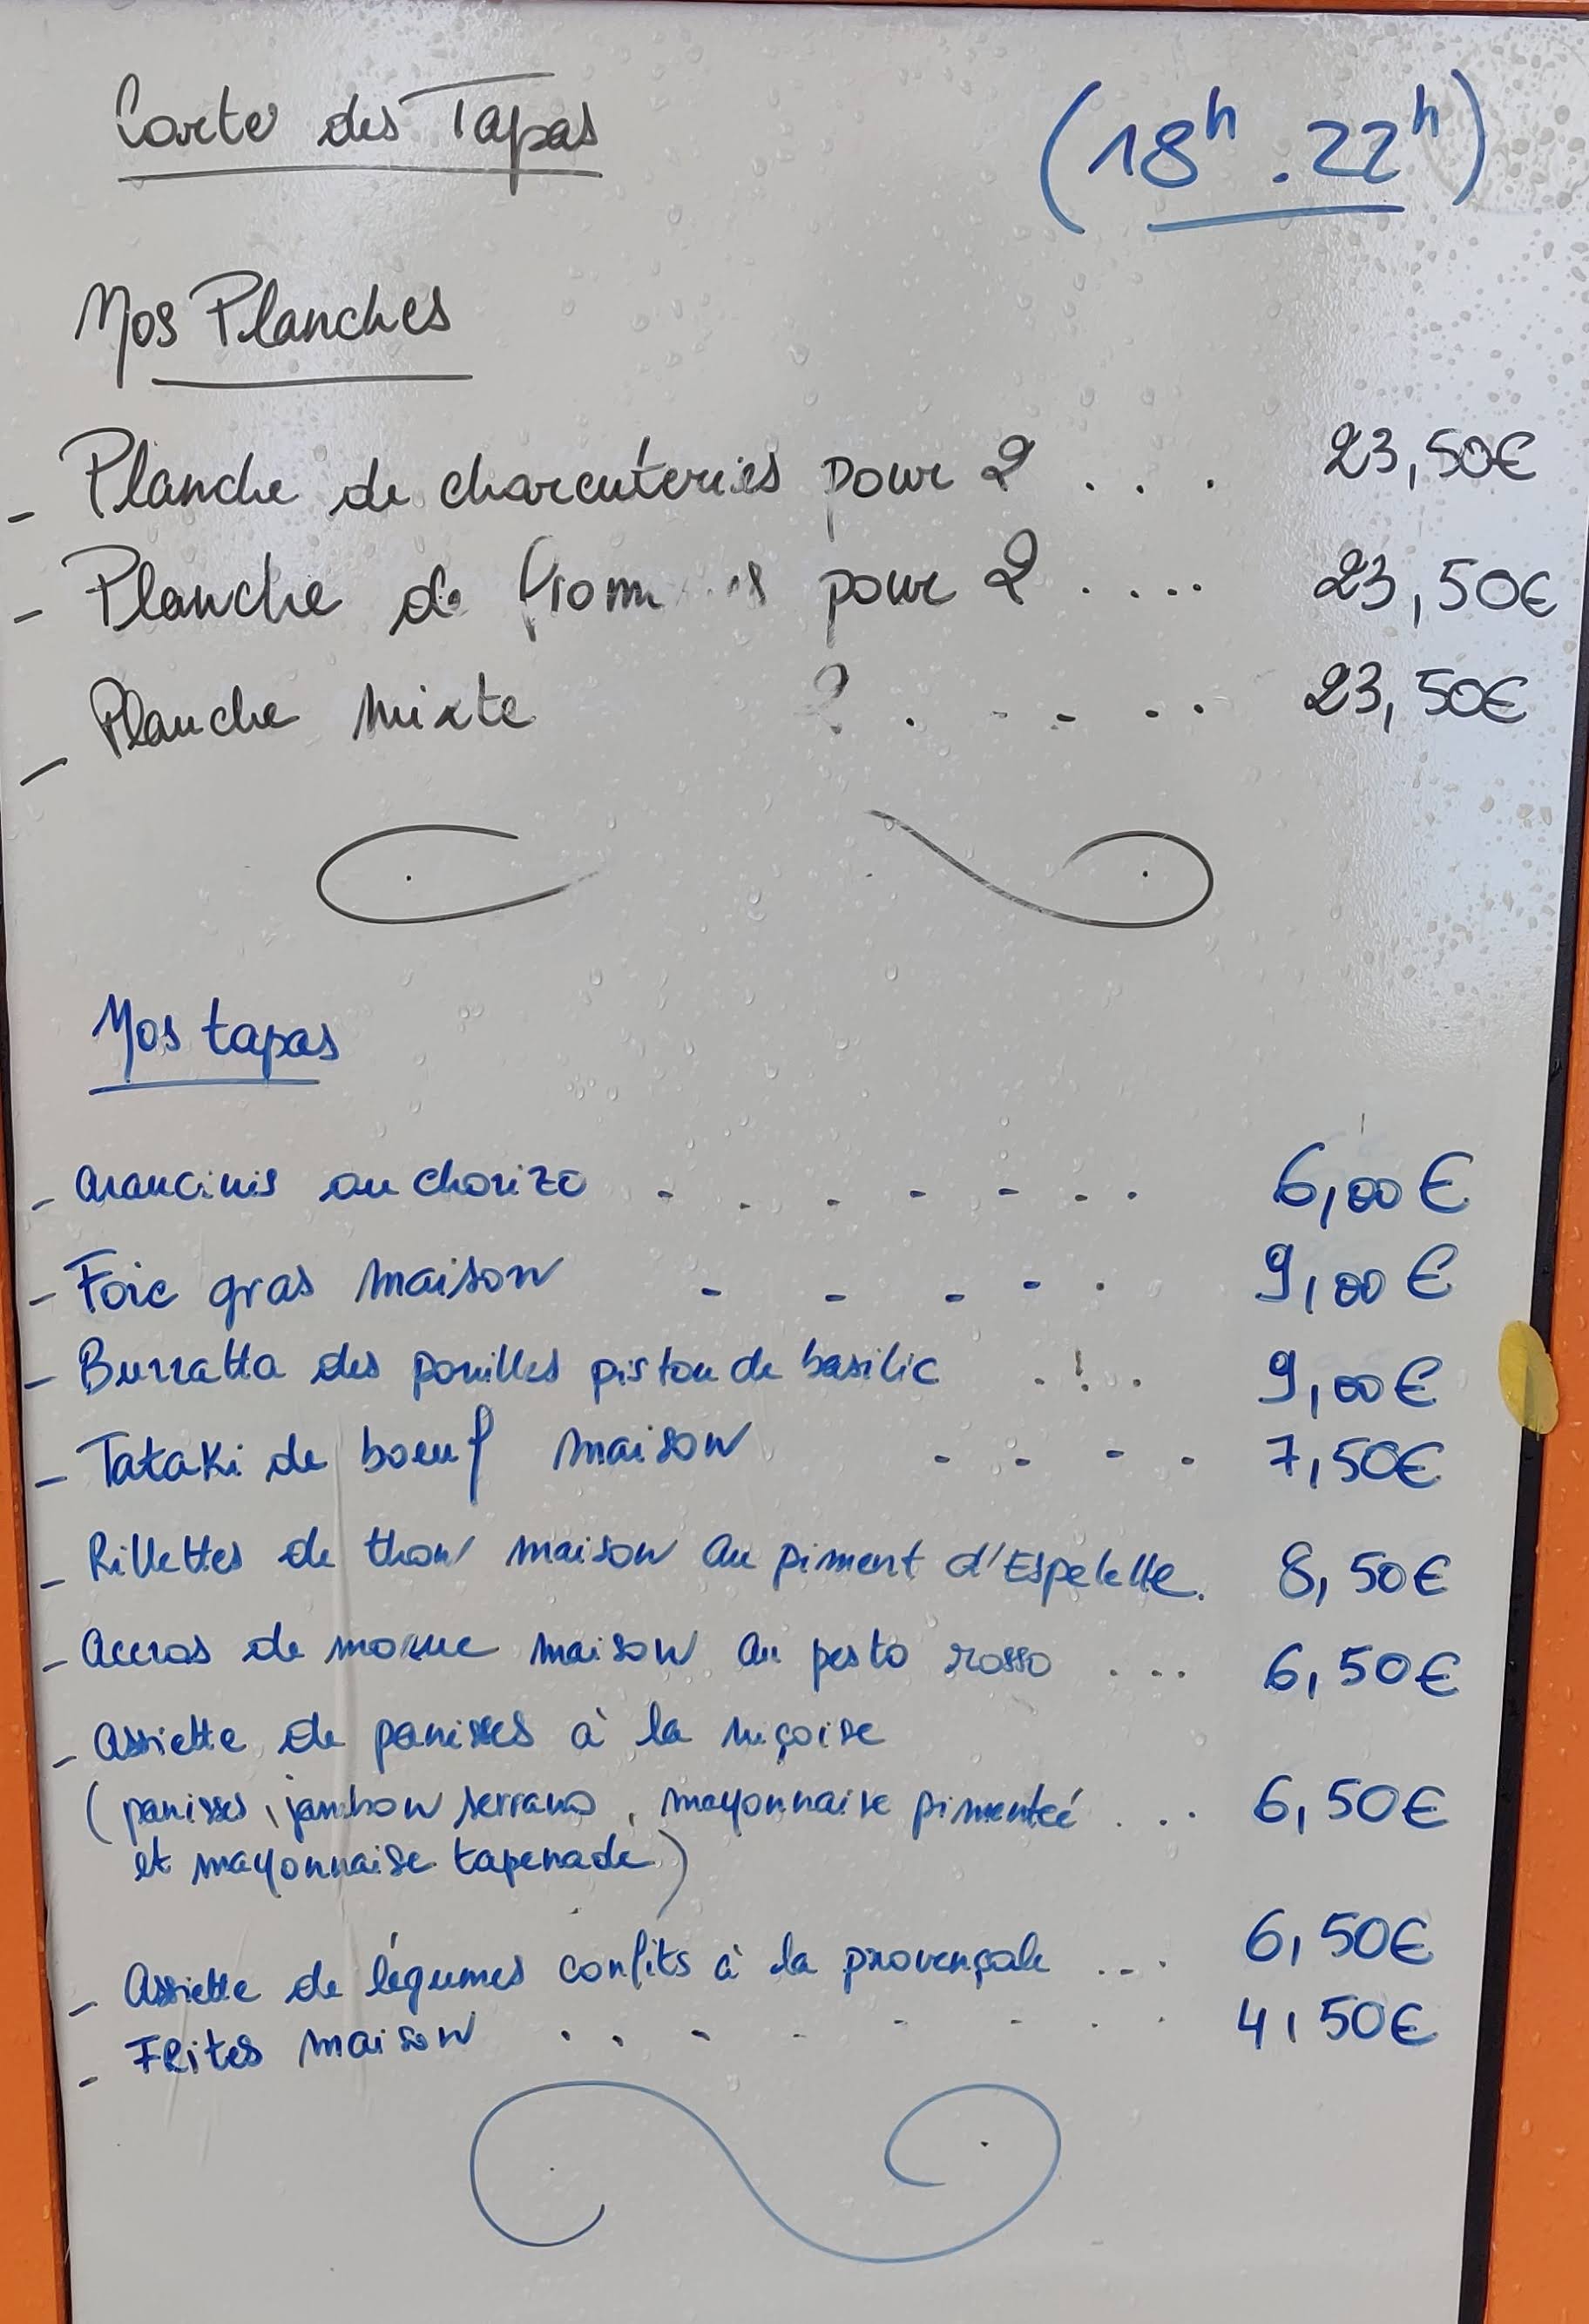 Carte des Tapas
(18h . 22h)
Nos Planches
- Planche de charcuteries pour 2 . . . 23,50€
- Planche de pour 2 . . . . 23,50€
- Planche mixte 2 . - - - . 23,50€
Nos tapas
- Arancinis au chorizo - . . - - . . 6,00€
- Foie gras maison - - - - . 9,00€
- Burratta des pouilles pistou de basilic . ! . 9,00€
- Tataki de boeuf maison - - - - 7,50€
- Rillettes de thon maison au piment d'Espelette. 8,50€
- Accras de morue maison au pesto rosso . . . 6,50€
- Assiette de panisses à la niçoise
(panisses, jambon serrano, mayonnaise pimenteé . . . 6,50€
et mayonnaise tapenade)
- Assiette de légumes confits à la provençale . . . 6,50€
- Frites maison . . - - - - . . 4,50€